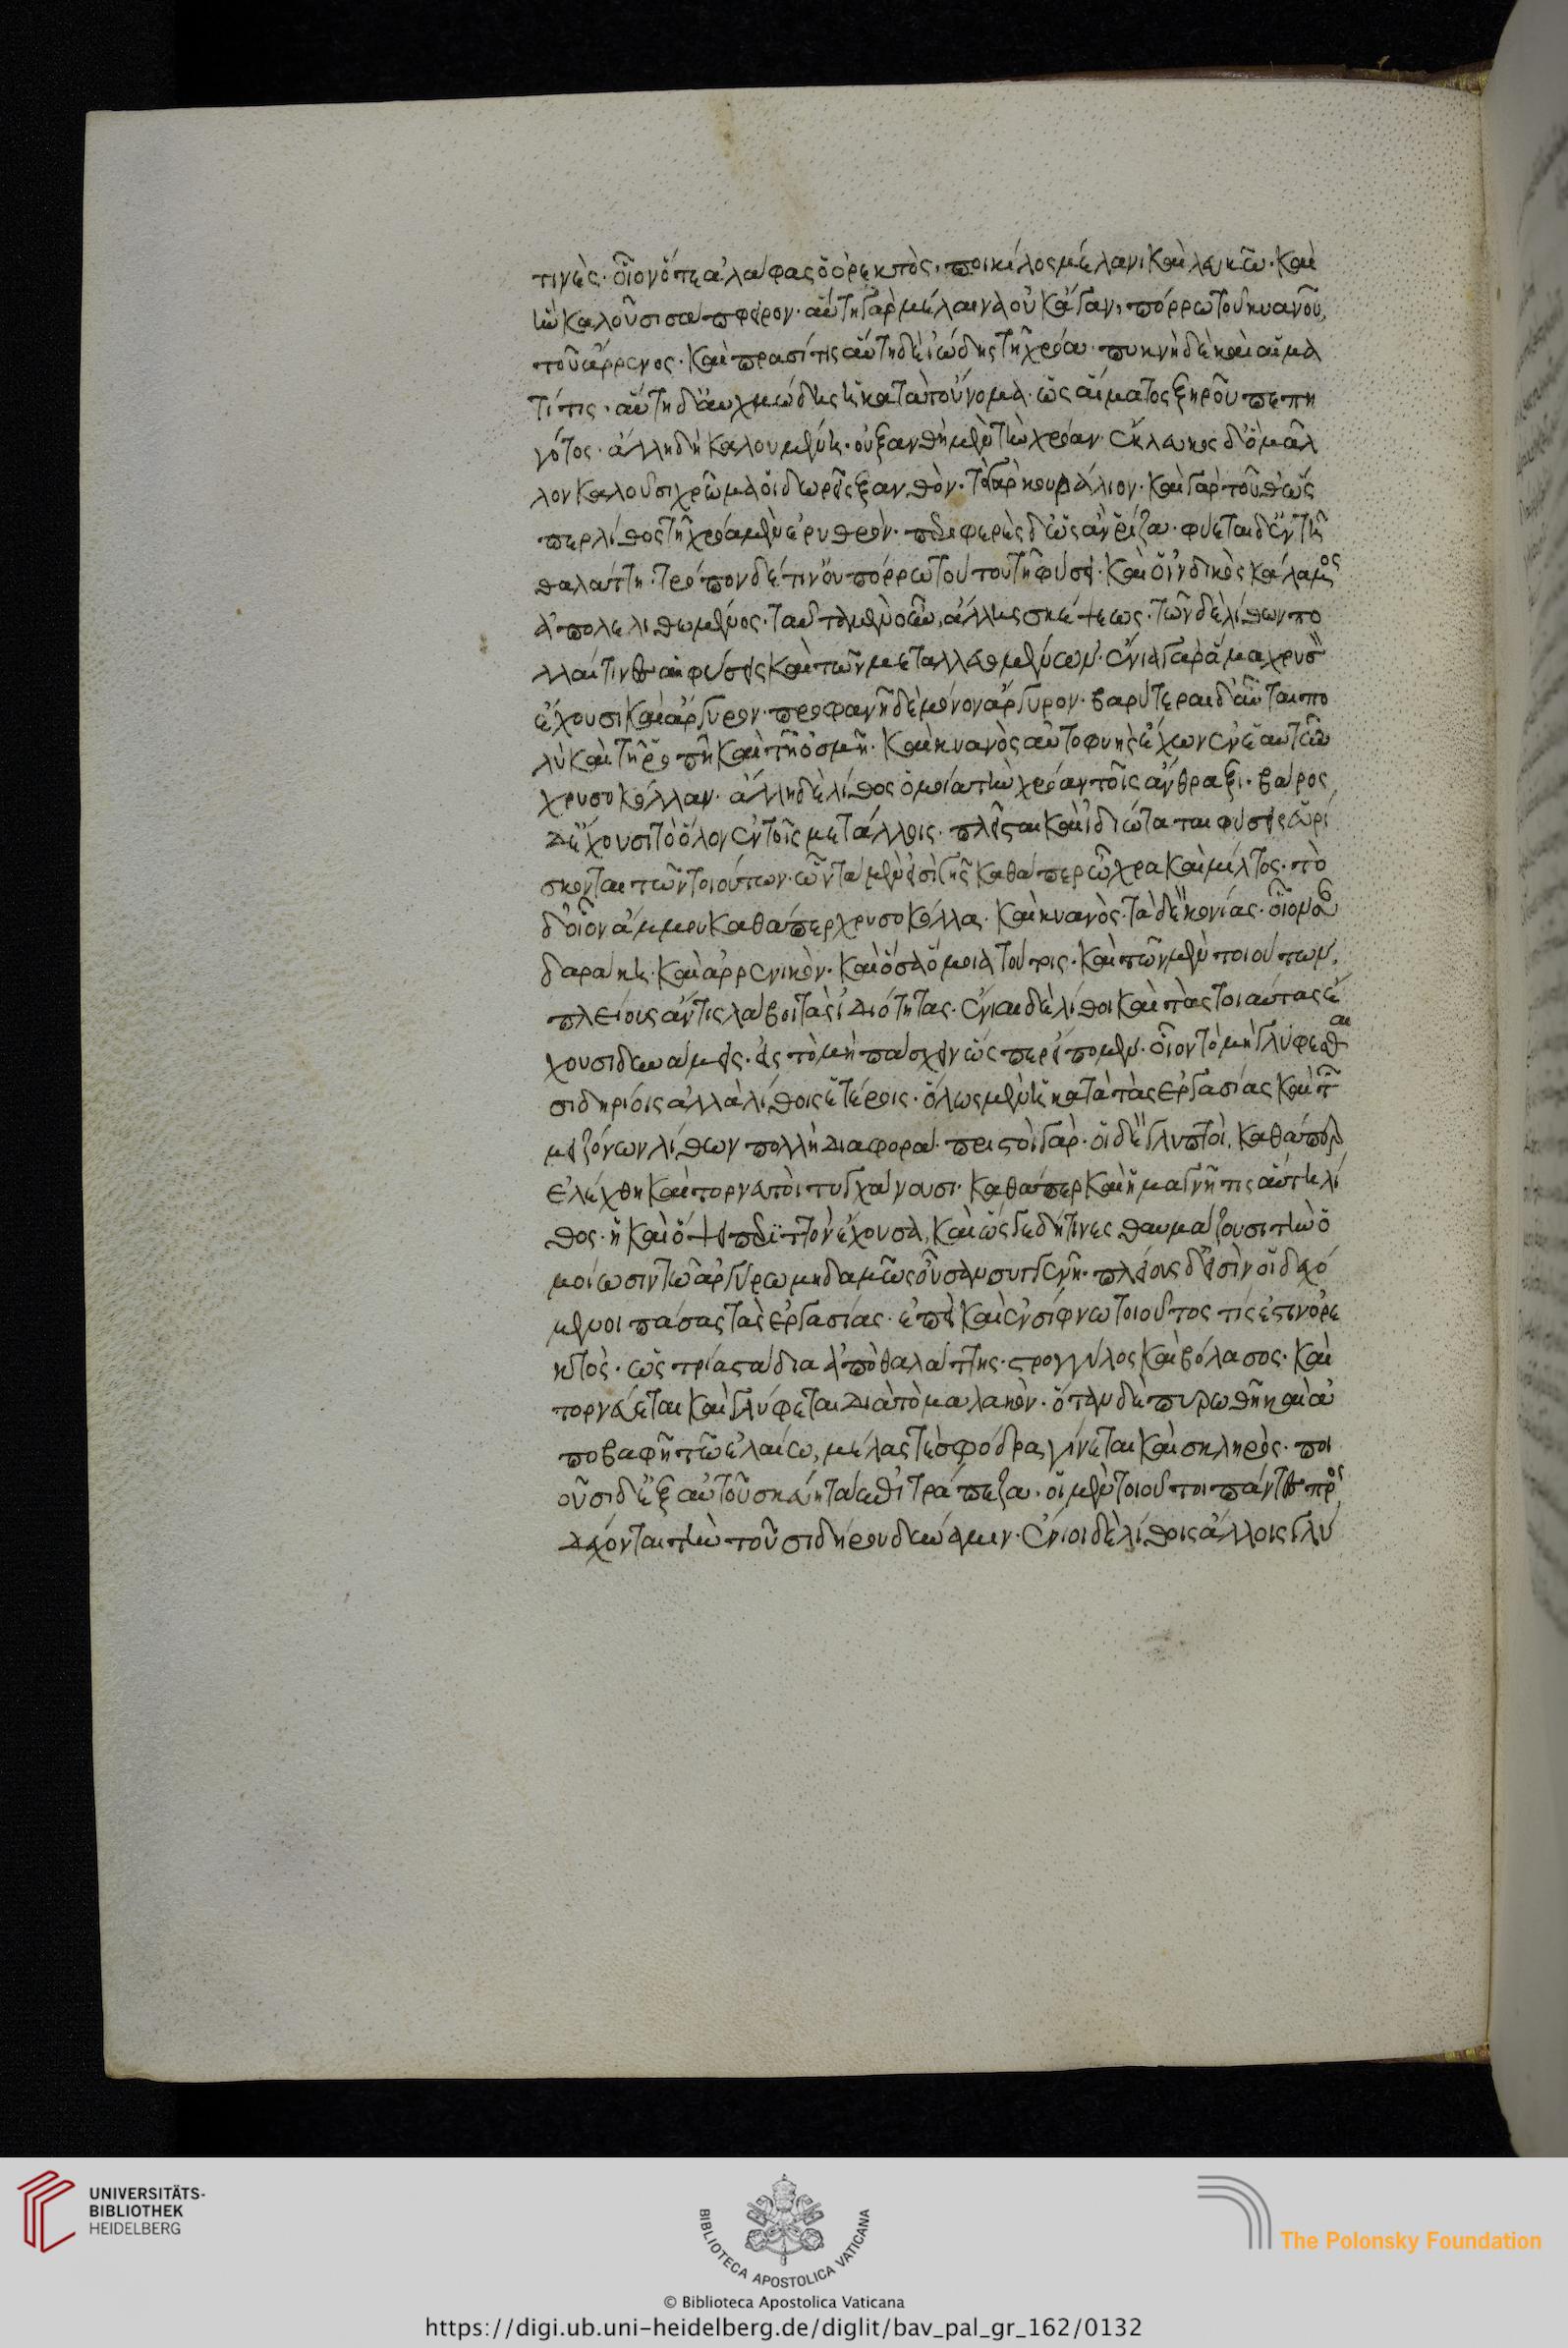 τινὲς. οἷον ὅτε ἀλάφας ὁ ὀρεκτὸς, ποικίλος μέλανι καὶ λευκῶ. καὶ
ἣν καλοῦσι σάπφειρον. αὕτη γὰρ μέλαινα οὐκ ἄγαν, πόρρω τοῦ κυανοῦ,
τοῦ ἄρρενος. καὶ πρασίτις αὕτη δὲ ἰώδης τῆ χρόα. πυκνὴ δὲ καὶ αἱμα
τίτις. αὕτη δ' αὐχμώδης καὶ κατὰ τοὔνομα. ὡς αἵματος ξηροῦ πεπη
γότος. ἄλλη δὴ καλουμένη. οὐ ξανθὴ μὲν τὴν χρόαν. ἔκλευκος δ' ὃ μᾶλ
λον καλοῦσι χρῶμα οἱ δωριεῖς ξανθόν. τὸ γὰρ κουράλιον. καὶ γὰρ τοῦθ' ὥς
περ λίθος τῆ χρόα μὲν ἐρυθρὸν. περιφερὲς δ' ὡς ἂν ῥίζα. φύεται δ' ἐν τῆ
θαλάττη. τρόπον δέ τιν' οὐ πόρρω τούτου τῆ φύσει. καὶ ὁ ἰνδικὸς κάλαμος
ἀπολελιθωμένος. ταῦτα μὲν οὖν, ἄλλης σκέψεως. τῶν δὲ λίθων πο
λλαί τινες αἱ φύσεις καὶ τῶν μεταλλευομένων. ἔνιαι γὰρ ἅμα χρυσὸν
ἔχουσι καὶ ἄργυρον. προφανῆ δὲ μόνον ἄργυρον. βαρύτεραι δ' αὗται πο
λὺ καὶ τῆ ῥοπῆ καὶ τῆ ὀσμῆ. καὶ κυανὸς αὐτοφυὴς ἔχων ἐν ἑαυτῶ
χρυσοκόλλαν. ἄλλη δὲ λίθος ὁμοία τὴν χρόαν τοῖς ἄνθραξι. βάρος
δ' ἔχουσι τὸ ὅλον ἐν τοῖς μετάλλοις. πλεῖσται καὶ ἰδιώταται φύσεις εὑρί
σκονται τῶν τοιούτων. ὧν τὰ μὲν εἰσὶ γῆς καθάπερ ὤχρα καὶ μίλτος. τὸ
δ' οἷον ἄμμου καθάπερ χρυσοκόλλα. καὶ κυανὸς. τὰ δὲ κονίας. οἷον σαν
δαράκη. καὶ ἀρρενικὸν. καὶ ὅσα ὅμοια τούτοις. καὶ τῶν μὲν τοιούτων,
πλείους ἄν τις λάβοι τὰς ἰδιότητας. ἔνιαι δὲ λίθοι καὶ τὰς τοιαύτας ἔ
χουσι δυνάμεις. εἰς τὸ μὴ πάσχειν ὥσπερ εἴπομεν. οἷον τὸ μὴ γλύφεσθαι
σιδηρίοις ἀλλὰ λίθοις ἑτέροις. ὅλως μὲν ἡ κατὰ τὰς ἐργασίας καὶ τῶν
μειζόνων λίθων πολλὴ διαφορά. πριστοὶ γὰρ. οἱ δὲ γλυπτοὶ, καθάπερ
ἐλέχθη καὶ τορνευτοὶ τυγχάνουσι. καθάπερ καὶ ἡ μαγνῆτις αὕτη λί
θος. ἡ καὶ ὄψει περιττὸν ἔχουσα, καὶ ὥς γε δή τινες θαυμάζουσι τὴν ὁ
μοίωσιν τῶ ἀργύρω μηδαμῶς οὖσαν συγγενῆ. πλείους δ' εἰσὶν οἱ δεχό
μενοι πάσας τὰς ἐργασίας. ἐπεὶ καὶ ἐν σίφνω τοιοῦτος τίς ἐστιν ὀρυ
κτὸς. ὡς τρία στάδια ἀπὸ θαλάττης. στρογγύλος καὶ βόλασος. καὶ
τορνεύεται καὶ γλύφεται διὰ τὸ μαλακὸν. ὅταν δὲ πυρωθῆ καὶ ἀ
ποβαφῆ τῶ ἐλαίω, μέλας τε σφόδρα γίνεται καὶ σκληρὸς. ποι
οῦσι δ' ἐξ αὐτοῦ σκεύη τὰ ἐπιτράπεζα. οἱ μὲν τοιοῦτοι πάντες προσ
δέχονται τὴν τοῦ σιδήρου δύναμιν. ἔνιοι δὲ λίθοις ἄλλοις γλύ
UNIVERSITÄTS-
BIBLIOTHEK
HEIDELBERG
BIBLIOTECA APOSTOLICA VATICANA
The Polonsky Foundation
© Biblioteca Apostolica Vaticana
https://digi.ub.uni-heidelberg.de/diglit/bav_pal_gr_162/0132